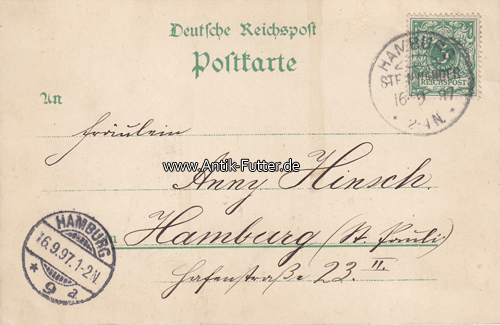 Deutsche Reichspost
Postkarte
An
Fräulein
Anny Hinsch.
Hamburg (St. Pauli)
Hafenstraße 23 II.
HAMBURG
16.9.97. 1-2 N.
* 9 a
HAMBURG
16 9 97
* 2-N. *
5
REICHSPOST
www.Antik-Futter.de